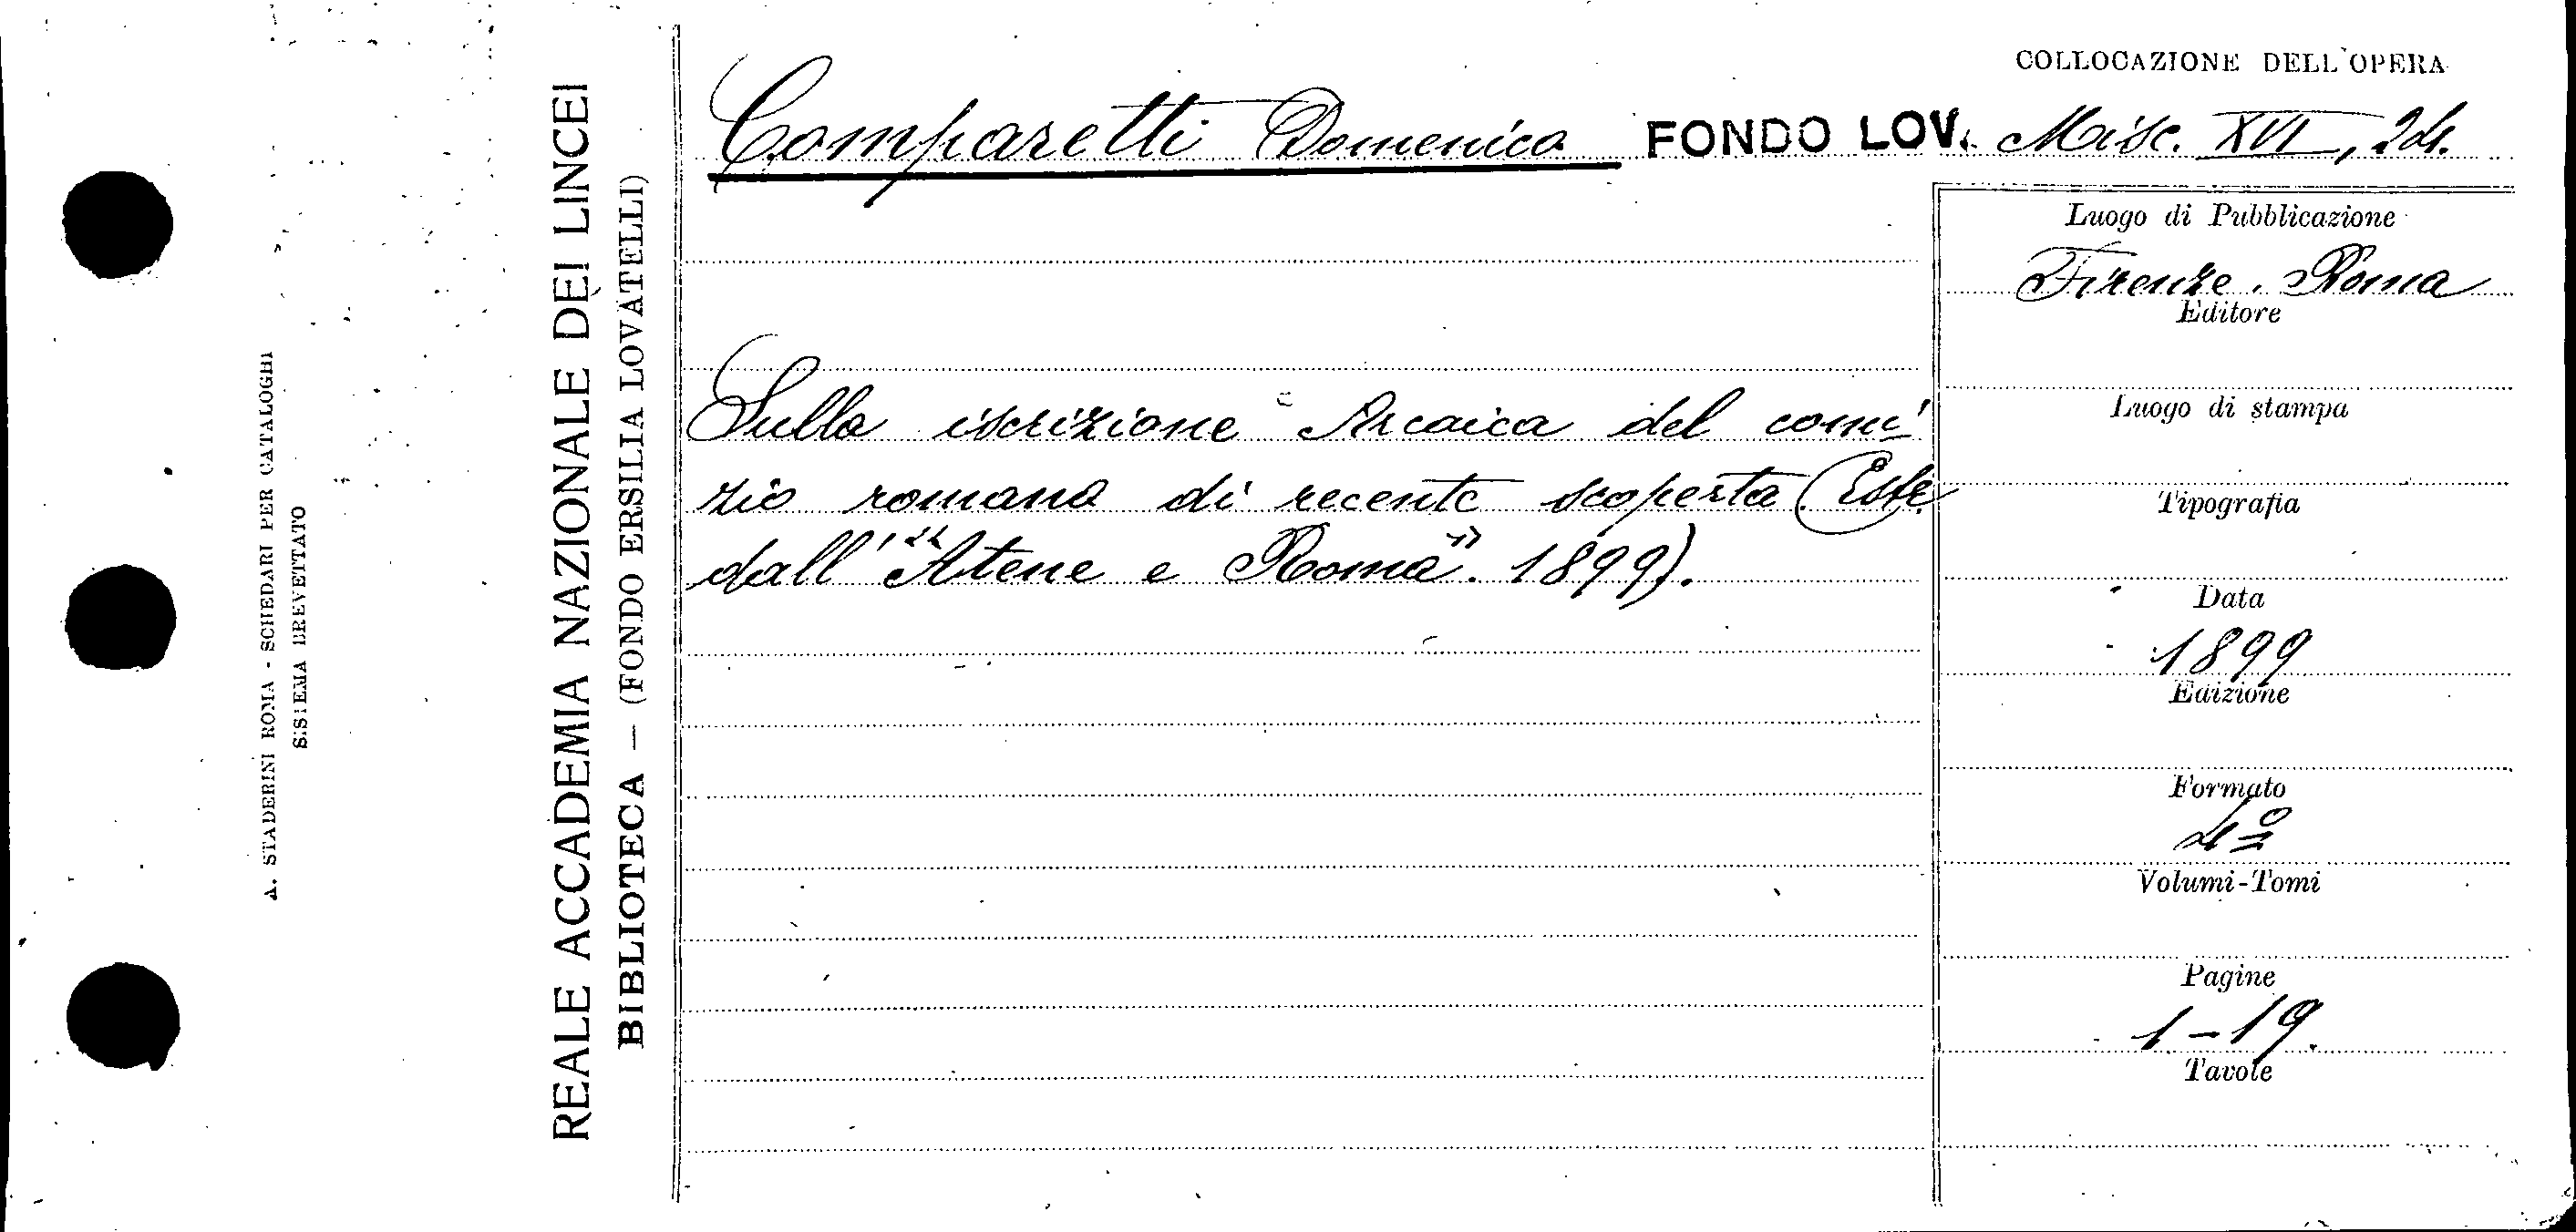 COLLOCAZIONE DELL'OPERA
Comparetti Domenico FONDO LOV. Misc. XVI, 24.
Sulla iscrizione Arcaica del comi
zio romano di recente scoperta (Estr.
dall' "Atene e Roma". 1899).
Luogo di Pubblicazione
Firenze. Roma
Editore
Luogo di stampa
Tipografia
Data
1899
Edizione
Formato
4º
Volumi-Tomi
Pagine
1-19.
Tavole
REALE ACCADEMIA NAZIONALE DEI LINCEI
BIBLIOTECA — (FONDO ERSILIA LOVATELLI)
A. STADERINI ROMA - SCHEDARI PER CATALOGHI
SISTEMA BREVETTATO